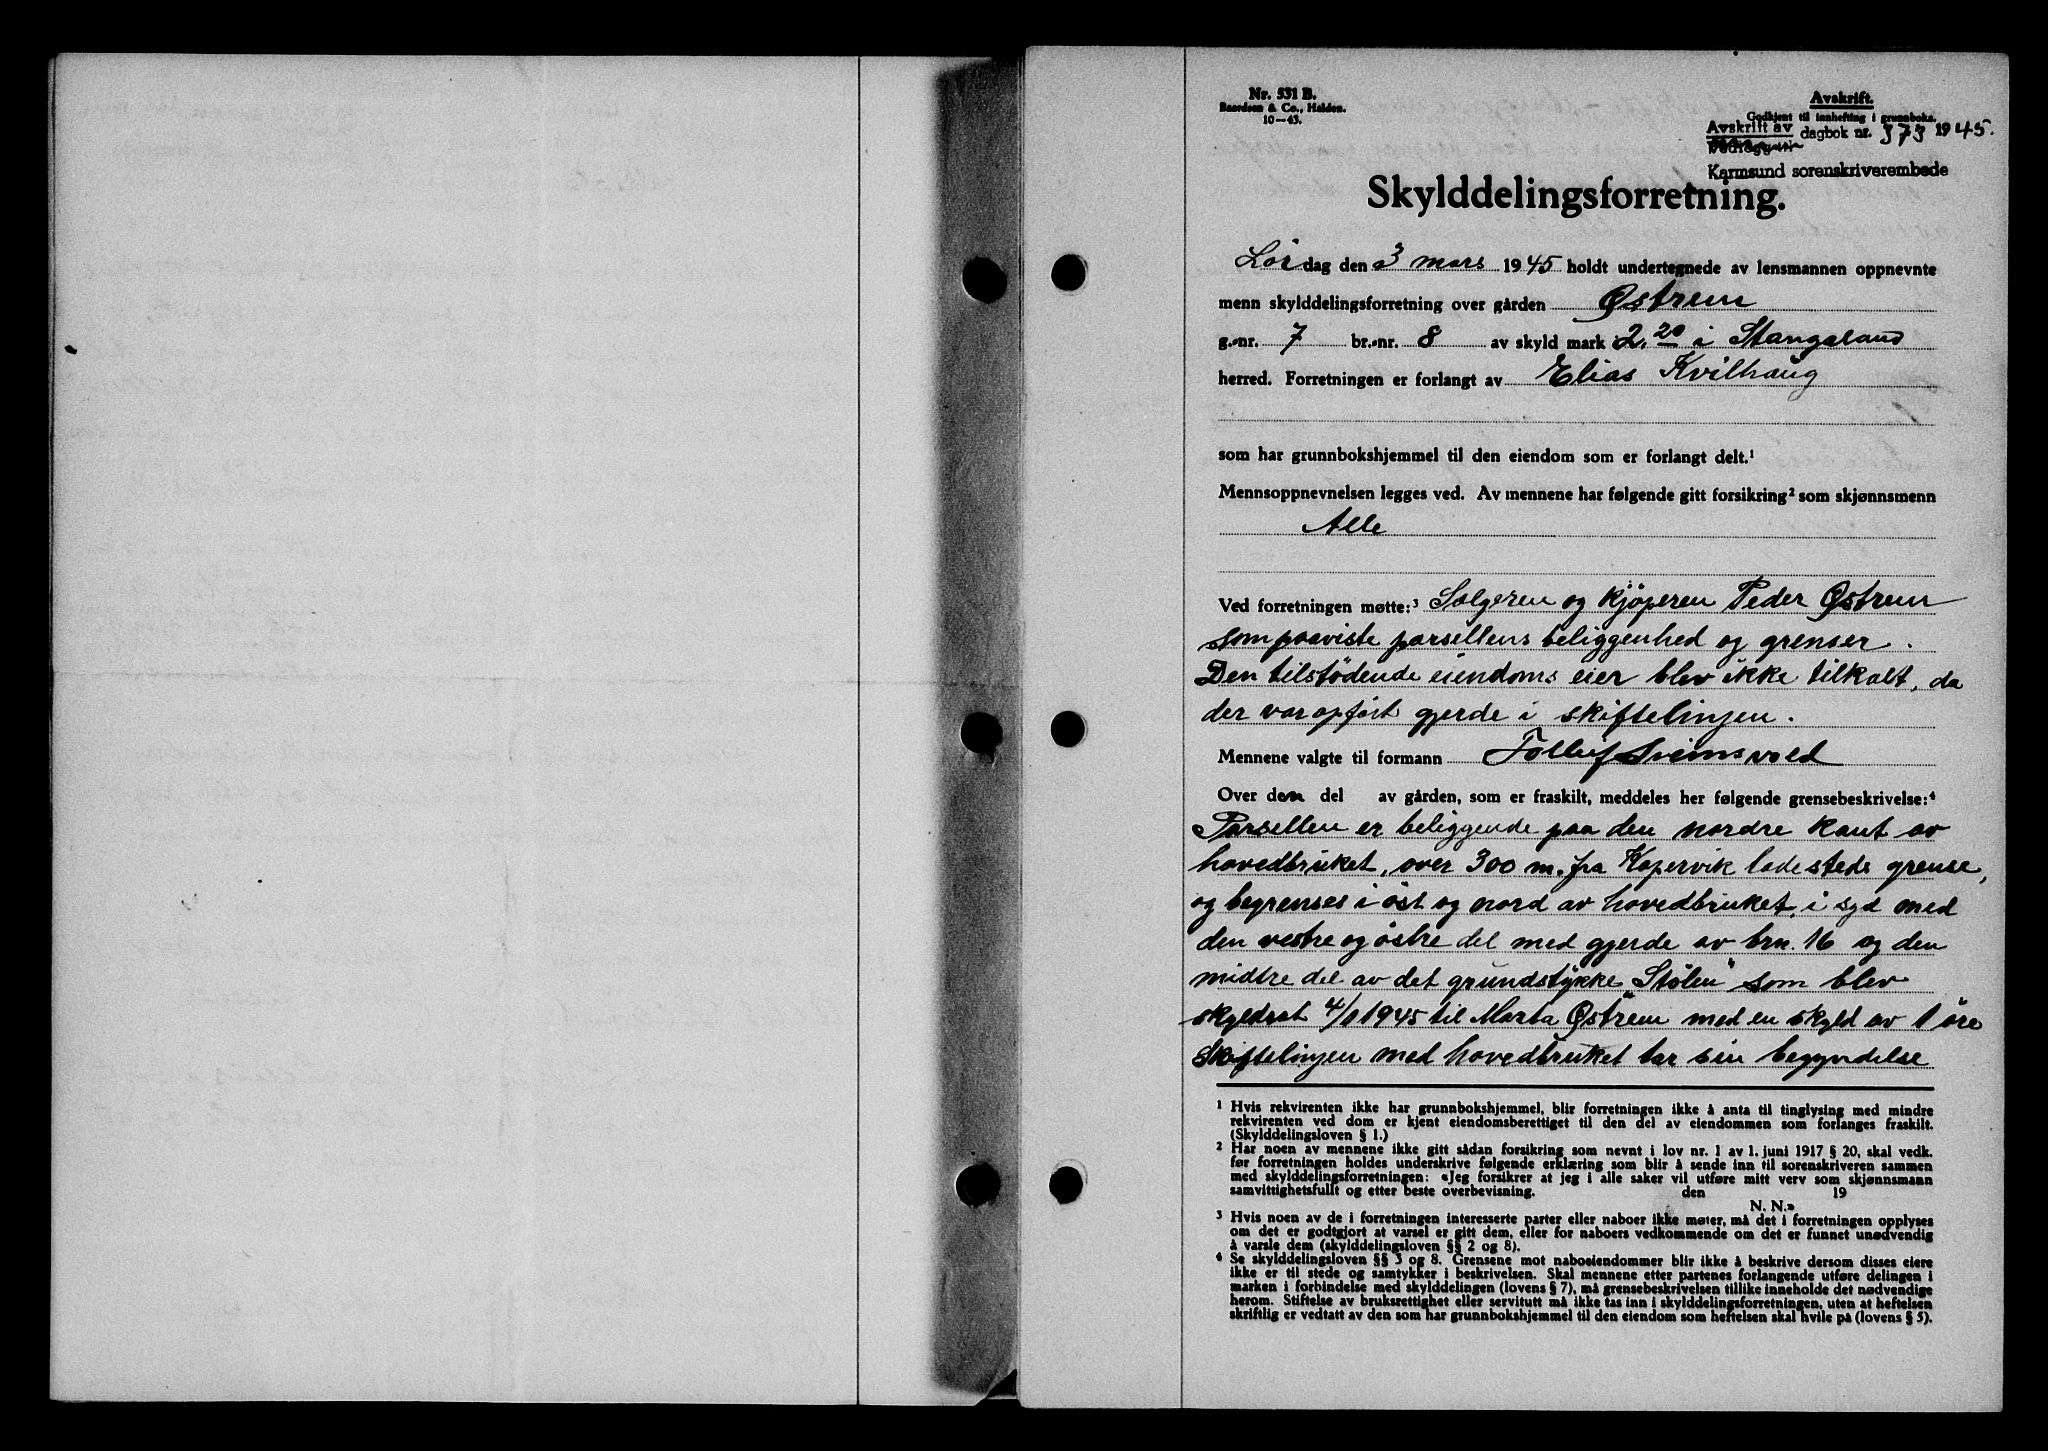 Nr. 531 B.
Baardsen & Co., Halden.
10—43.
Avskrift.
Godkjent til innhefting i grunnboka.
Avskrift av dagbok nr. 373 1945.
Vedlegg
Karmsund sorenskriverembede
Skylddelingsforretning.
Lørdag den 3 mars 1945 holdt undertegnede av lensmannen oppnevnte
menn skylddelingsforretning over gården Østrem
g.-nr. 7 br.-nr. 8 av skyld mark 2.20 i Stangaland
herred. Forretningen er forlangt av Elias Kvilhaug
som har grunnbokshjemmel til den eiendom som er forlangt delt.¹
Mennsoppnevnelsen legges ved. Av mennene har følgende gitt forsikring² som skjønnsmenn
Alle
Ved forretningen møtte:³ Selgeren og kjöperen Peder Østrem
som paaviste parsellens beliggenhed og grenser.
Den tilstödende eiendoms eier blev ikke tilkalt, da
der var opfört gjerde i skiftelinjen.
Mennene valgte til formann Tolleif Sveinsvold
Over den del av gården, som er fraskilt, meddeles her følgende grensebeskrivelse:⁴
Parsellen er beliggende paa den nordre kant av
hovedbruket, over 300 m. fra Kopervik ladesteds grense,
og begrenses i öst og nord av hovedbruket, i syd med
den vestre og östre del med gjerde av brn. 16 og den
midtre del av det grundstykke "Stölen" som blev
skyldsat 4/1 1945 til Marta Østrem med en skyld av 1 öre
Skiftelinjen med hovedbruket tar sin begyndelse
¹ Hvis rekvirenten ikke har grunnbokshjemmel, blir forretningen ikke å anta til tinglysing med mindre
rekvirenten ved dom er kjent eiendomsberettiget til den del av eiendommen som forlanges fraskilt.
(Skylddelingsloven § 1.)
² Har noen av mennene ikke gitt sådan forsikring som nevnt i lov nr. 1 av 1. juni 1917 § 20, skal vedk.
før forretningen holdes underskrive følgende erklæring som blir å sende inn til sorenskriveren sammen
med skylddelingsforretningen: «Jeg forsikrer at jeg i alle saker vil utføre mitt verv som skjønnsmann
samvittighetsfullt og etter beste overbevisning. den 19
N. N.»
³ Hvis noen av de i forretningen interesserte parter eller naboer ikke møter, må det i forretningen opplyses
om det er godtgjort at varsel er gitt dem, eller for naboers vedkommende om det er funnet unødvendig
å varsle dem (skylddelingsloven §§ 2 og 8).
⁴ Se skylddelingsloven §§ 3 og 8. Grensene mot naboeiendommer blir ikke å beskrive dersom disses eiere
ikke er til stede og samtykker i beskrivelsen. Skal mennene etter partenes forlangende utføre delingen i
marken i forbindelse med skylddelingen (lovens § 7), må grensebeskrivelsen tillike inneholde det nødvendige
herom. Stiftelse av bruksrettighet eller servitutt må ikke tas inn i skylddelingsforretningen, uten at heftelsen
skriftlig er vedtatt av den som har grunnbokshjemmel til den eiendom som heftelsen skal hvile på (lovens § 5).